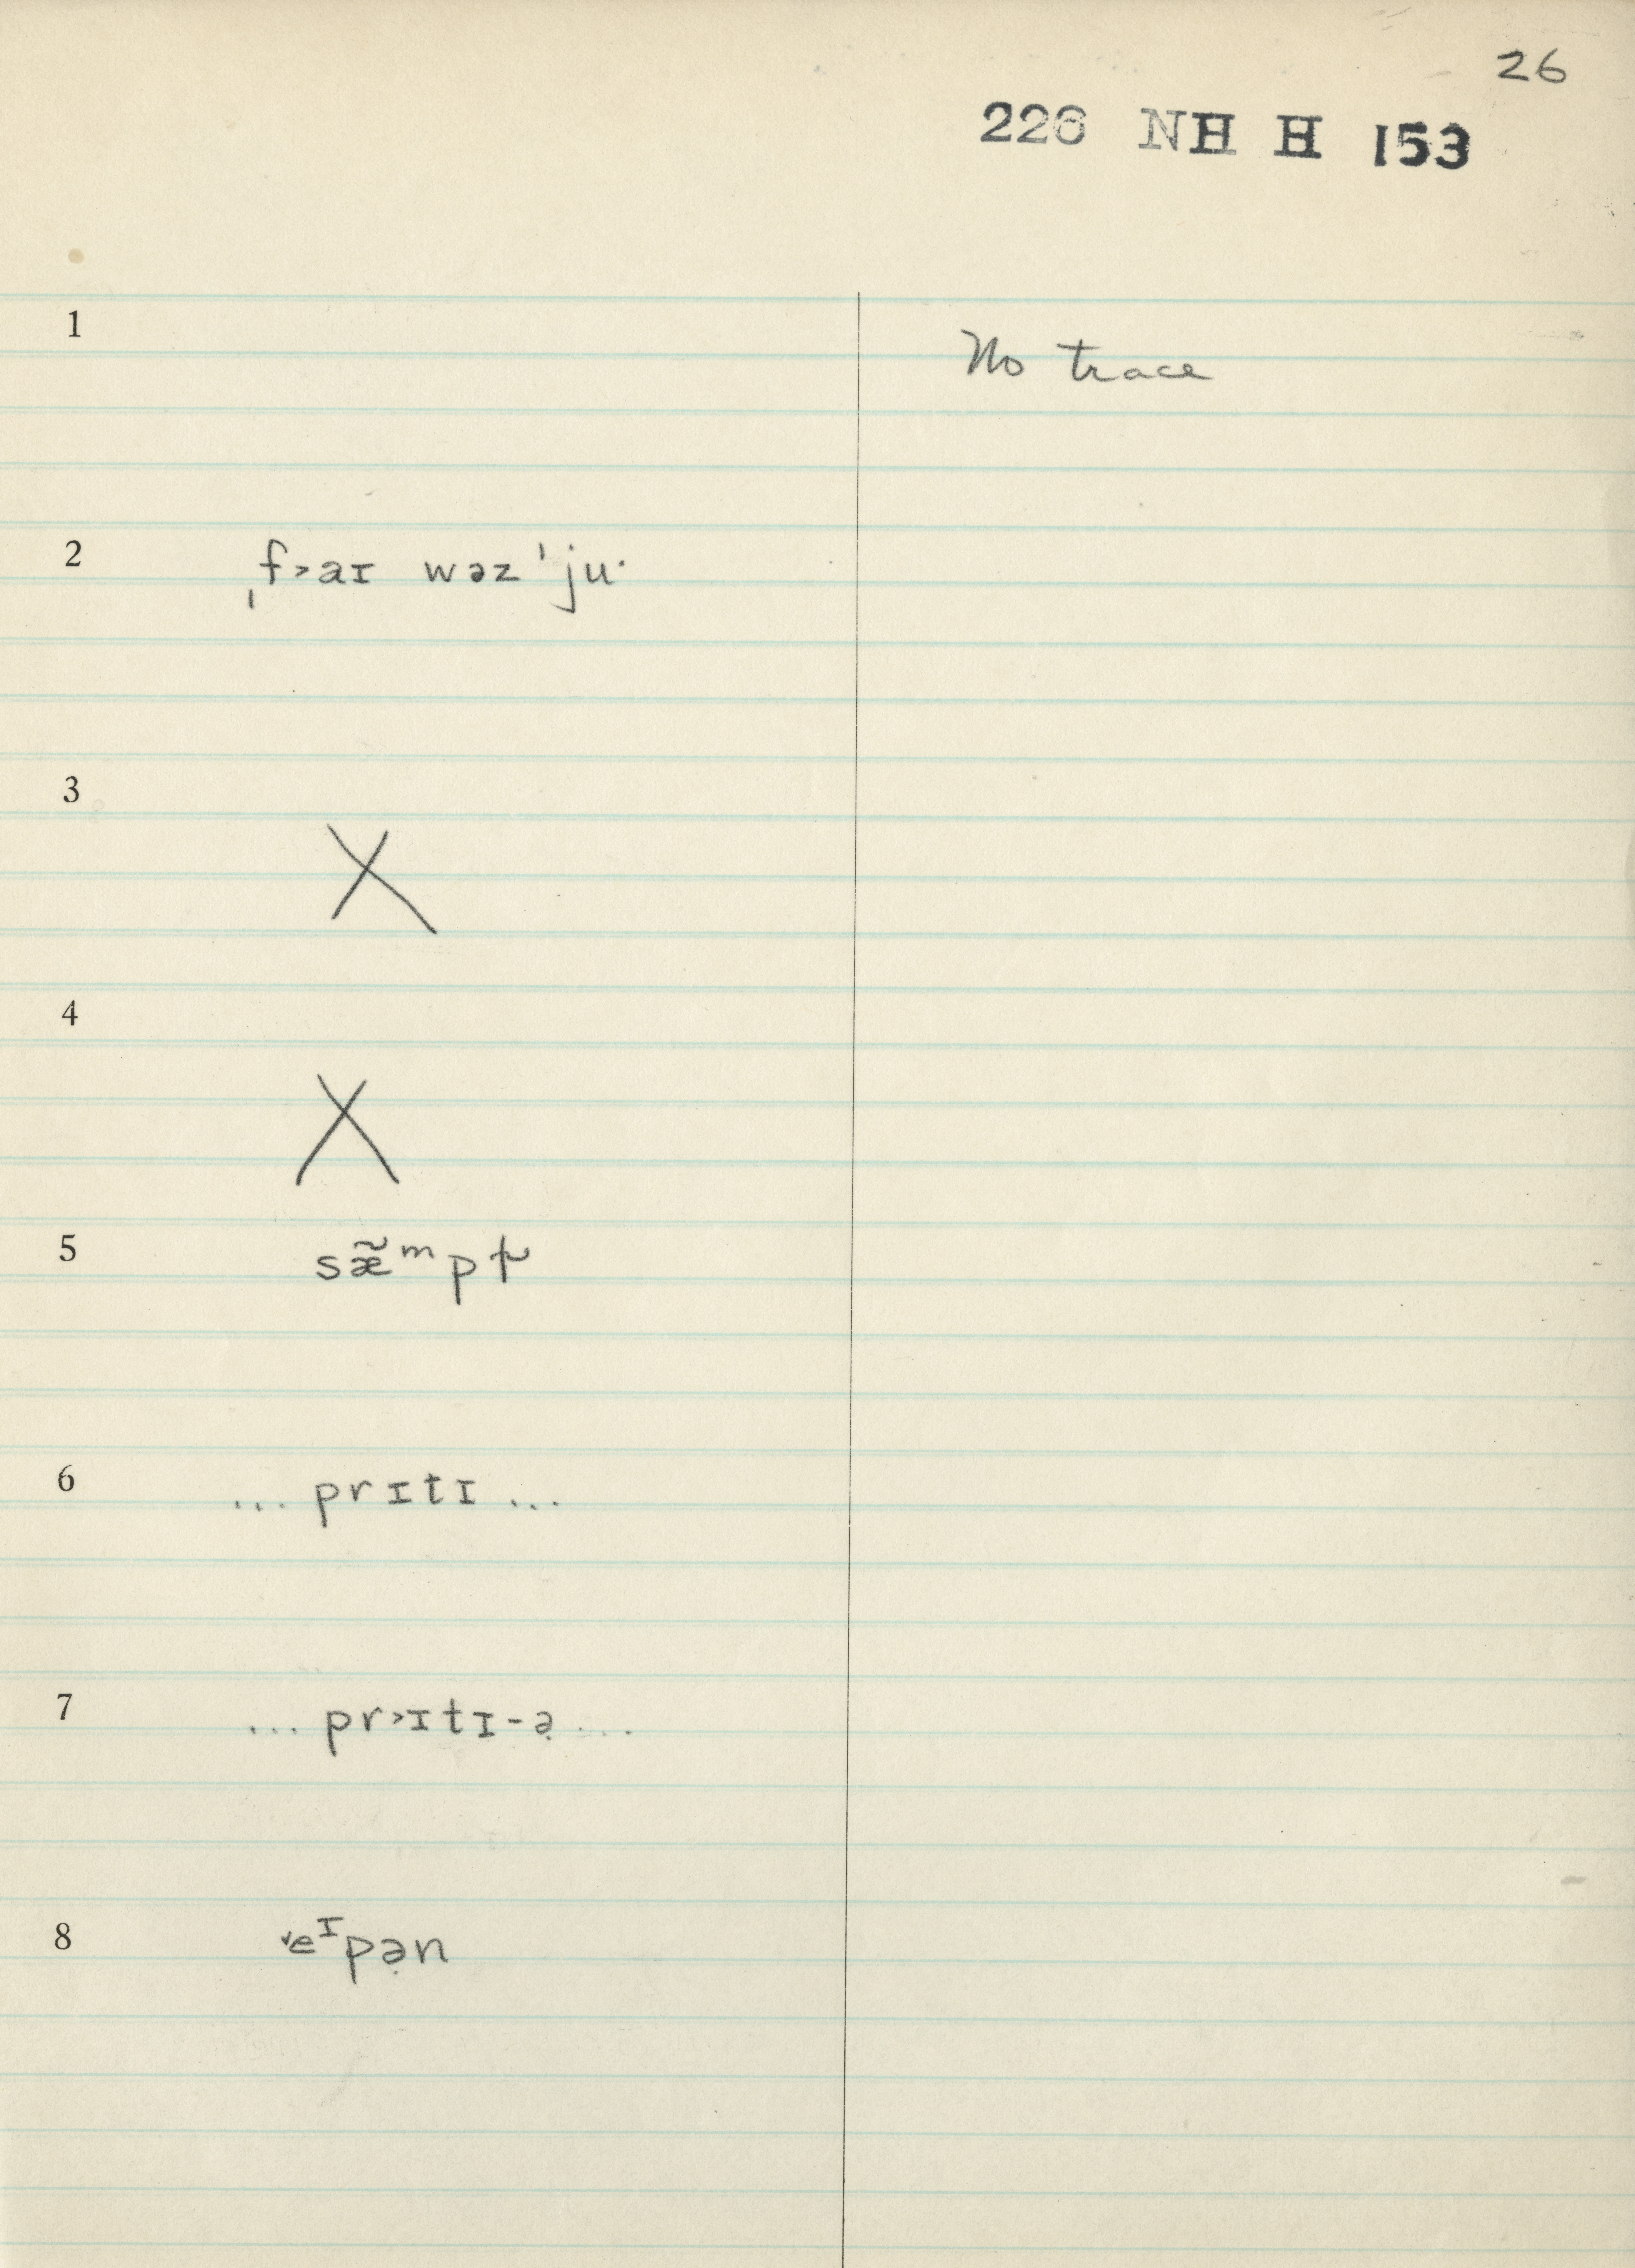 26
226 NH H 153
1
No trace
2 ˌf˃aɪ wəz ˈju·
3 X
4 X
5 sæ̃ᵐp
6 ... prɪtɪ ...
7 ... pr˃ɪtɪ-ə̣ ...
8 ˅eᶦpə̣n